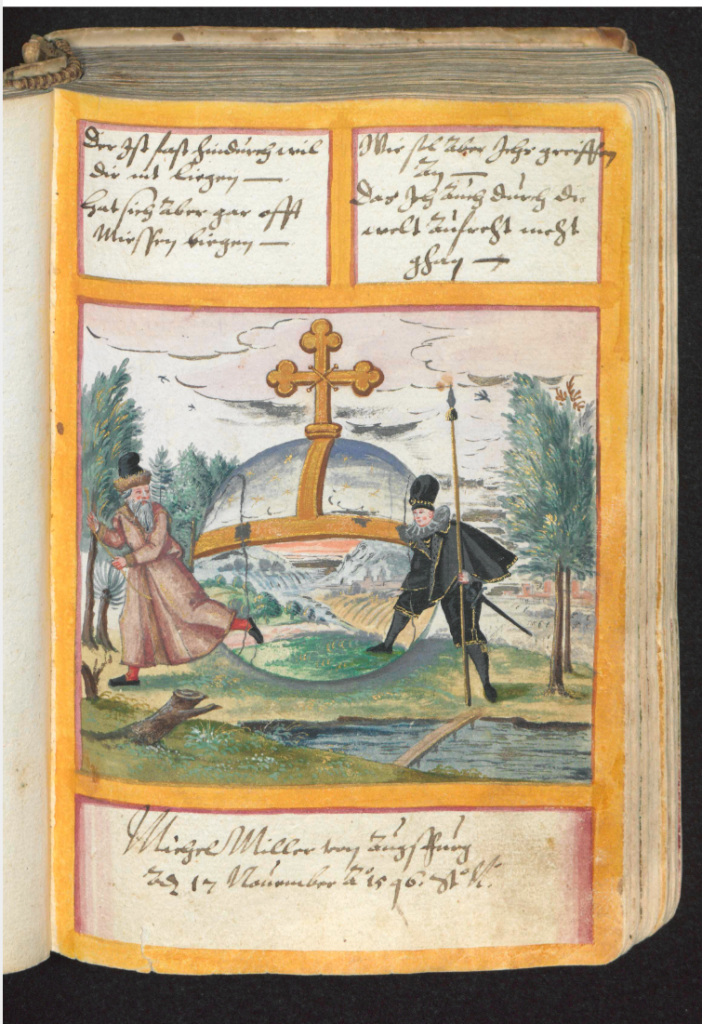 Der Ist fast hindurch wil
dir nit liegen —
hat sich aber gar offt
Miessen biegen —
Wie sol aber Ichs greiffen
an —
Das Ich auch durch die
welt aufrecht mecht
ghan —
Michel Miller von Augspurg
17 November a° 1596. St° N.